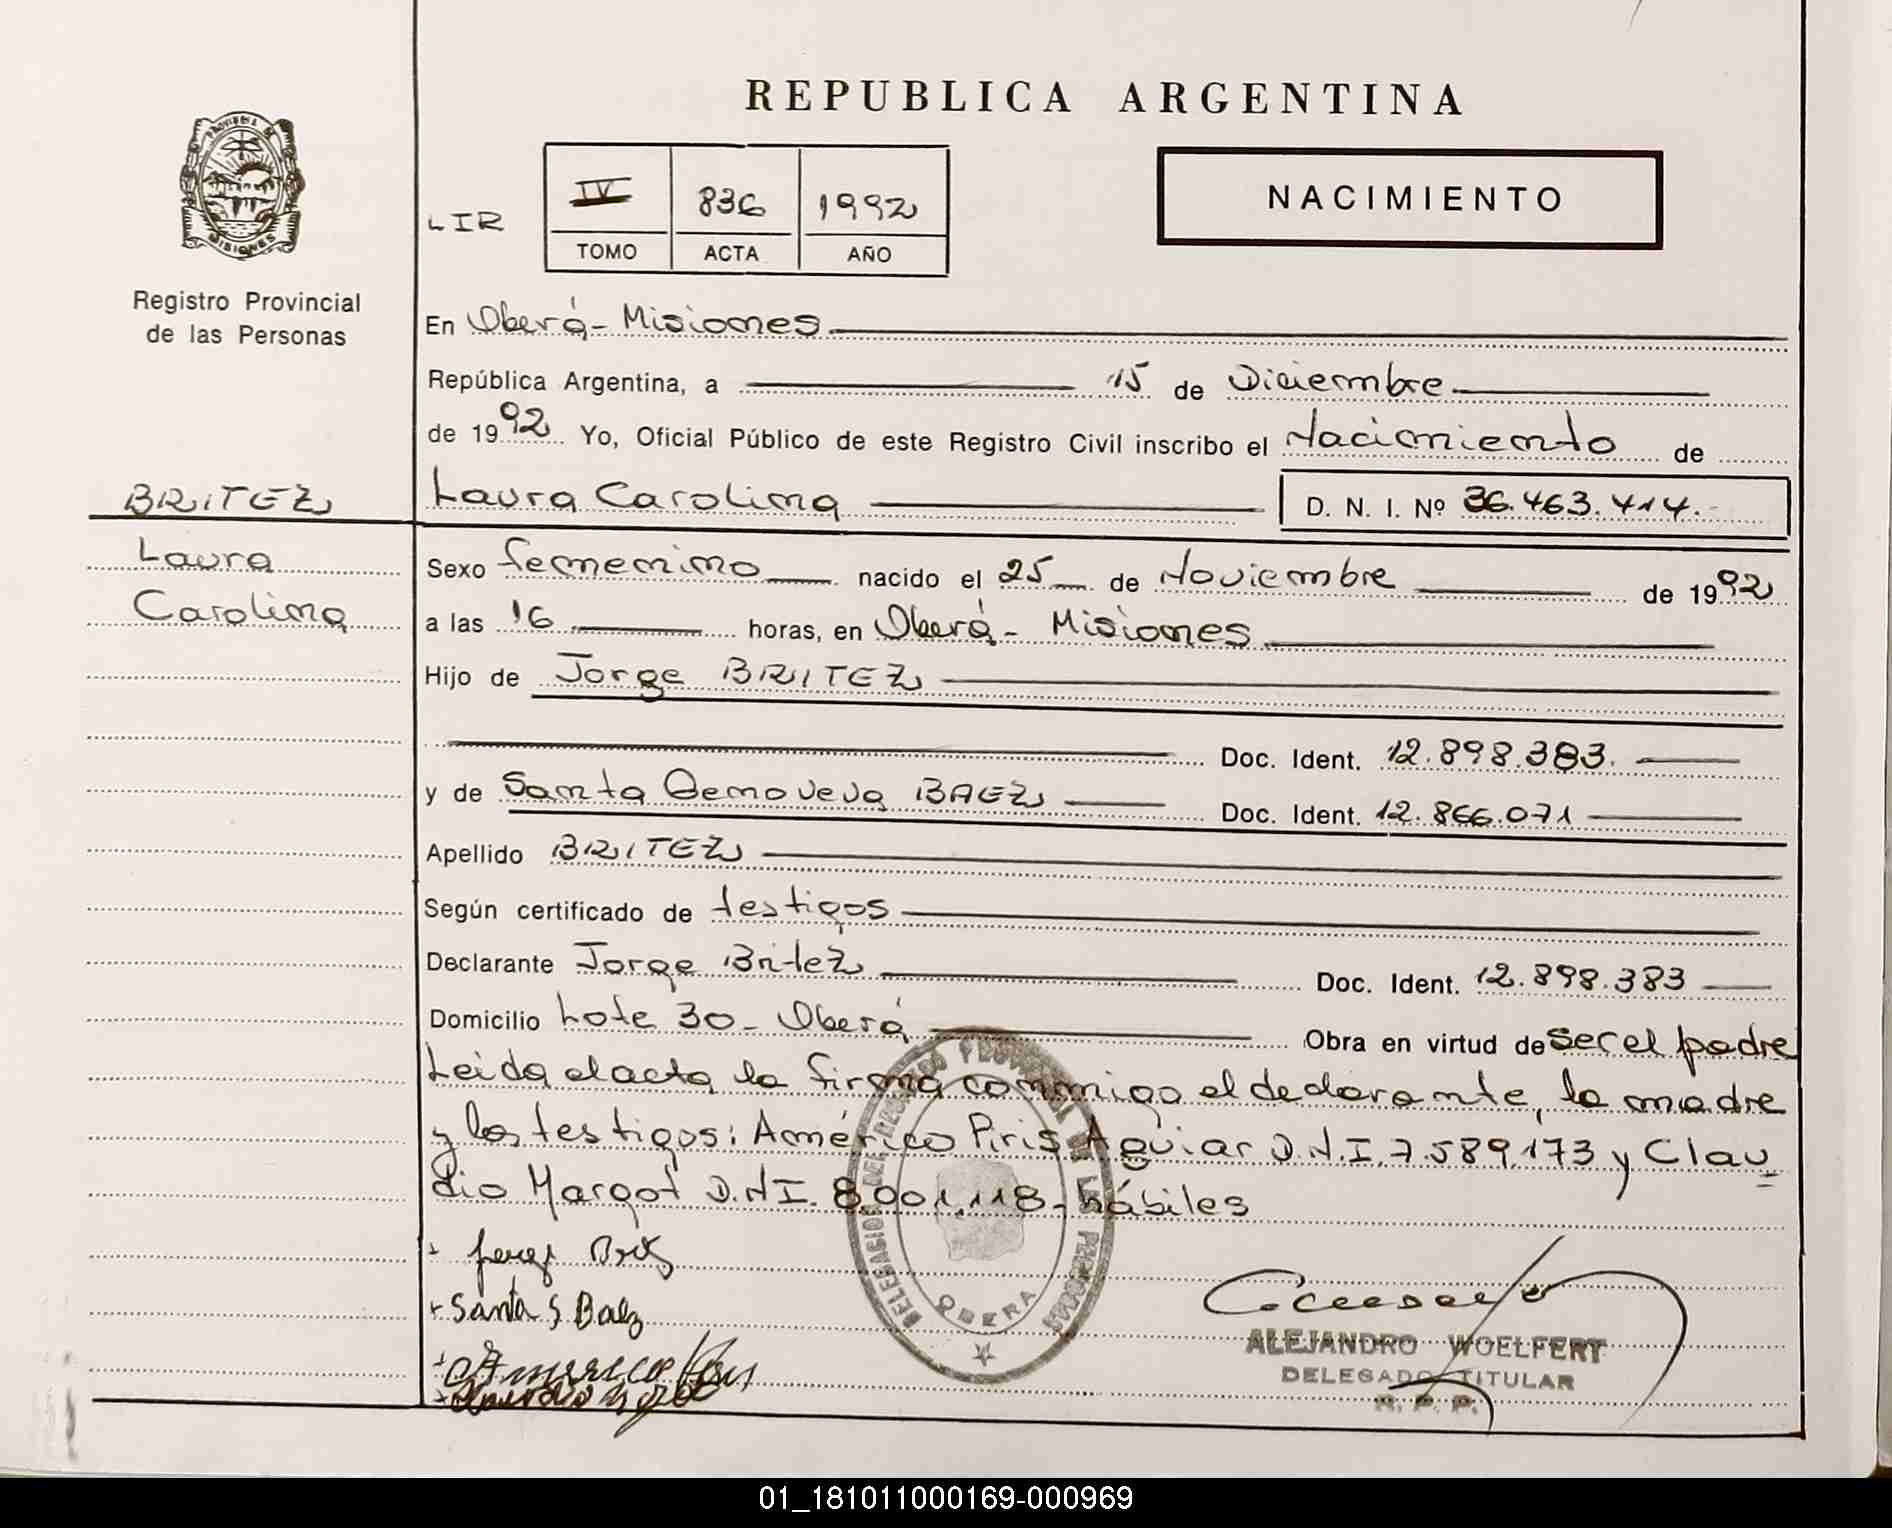 REPUBLICA ARGENTINA
PROVINCIA DE MISIONES
Registro Provincial
de las Personas
LIR
IV 836 1992
TOMO ACTA AÑO
NACIMIENTO
En Oberá - Misiones
República Argentina, a 15 de Diciembre
de 1992 Yo, Oficial Público de este Registro Civil inscribo el Nacimiento de
BRITEZ
Laura
Carolina
Laura Carolina D. N. I. Nº 36.463.414.
Sexo femenino nacido el 25 de Noviembre de 1992
a las 16 horas, en Oberá - Misiones
Hijo de Jorge BRITEZ
Doc. Ident. 12.898.383.
y de Santa Genoveva BAEZ Doc. Ident. 12.866.071
Apellido BRITEZ
Según certificado de testigos
Declarante Jorge Britez Doc. Ident. 12.898.383
Domicilio Lote 30 - Oberá Obra en virtud de ser el padre
Leida el acta la firma conmigo el declarante, la madre
y los testigos: Américo Piris Aguiar D.N.I. 7.589.173 y Clau=
dio Margot D.N.I. 8.001.118 - hábiles
DELEGACION DEL REGISTRO PROVINCIAL DE LAS PERSONAS
OBERA
Santa G Baez
ALEJANDRO WOELFERT
DELEGADO TITULAR
R. P. P.
01_181011000169-000969